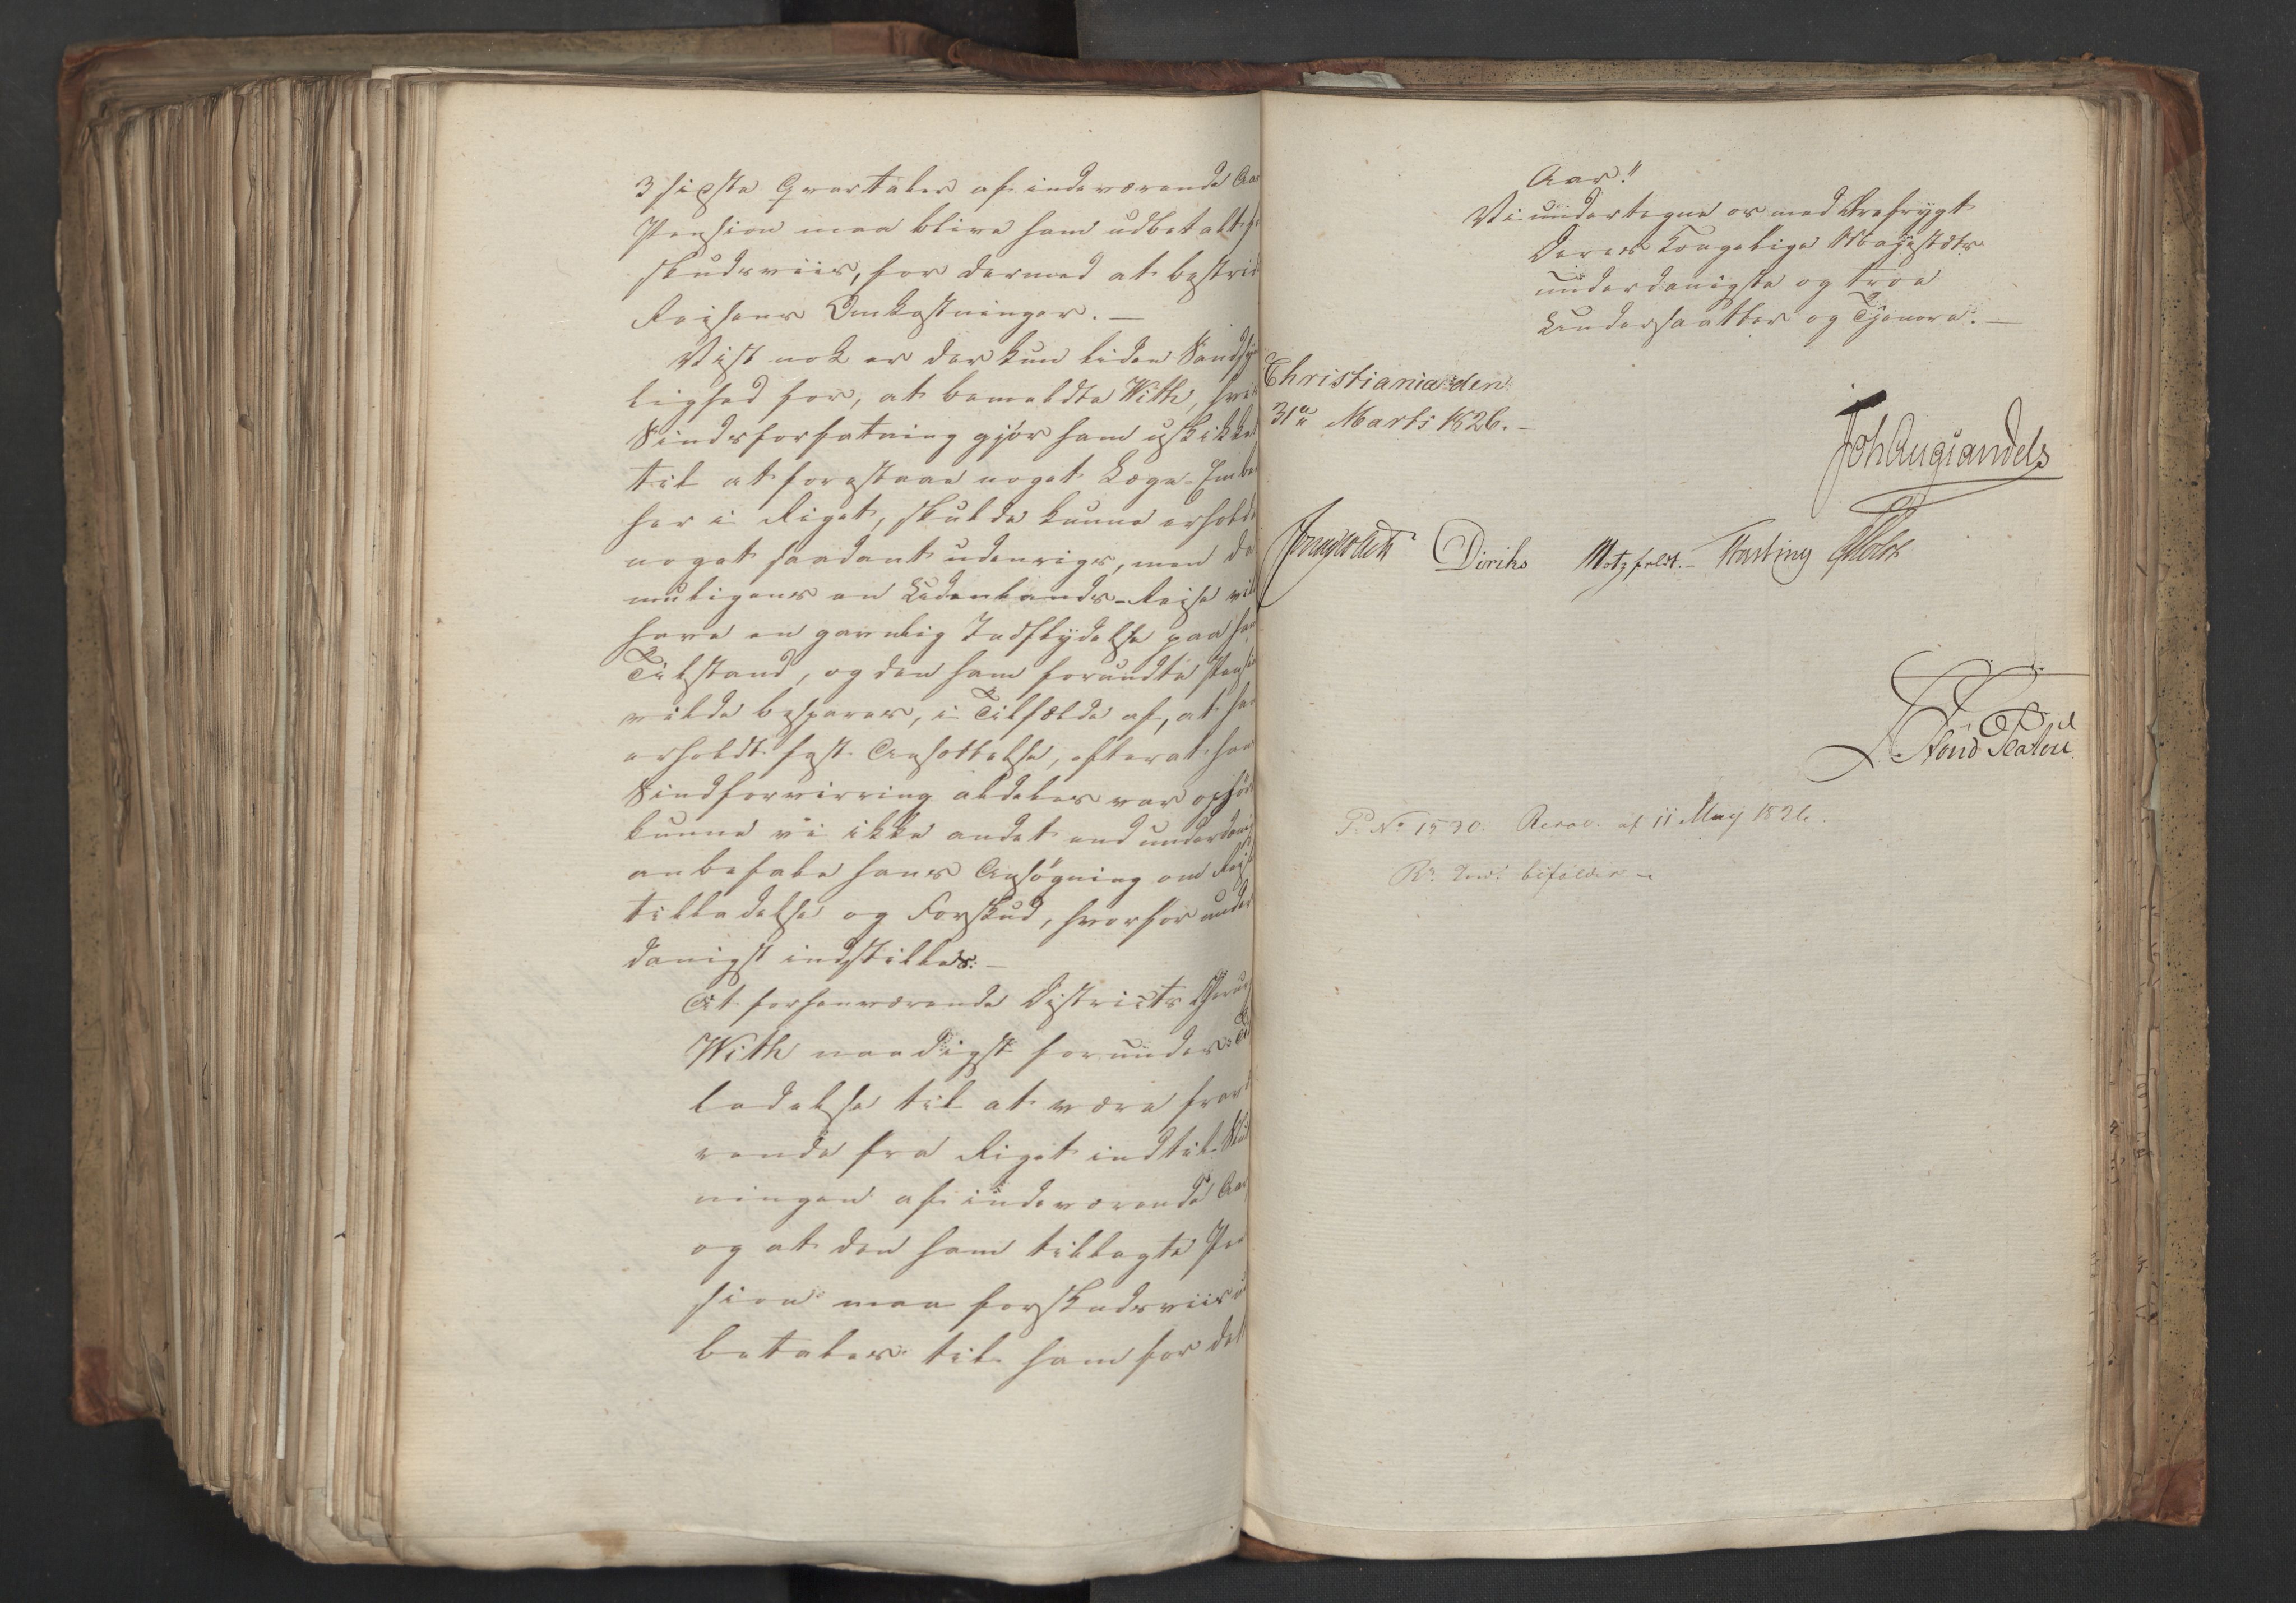 3 sidste Qvartaler af indeværende Aar
Pension maa blive ham udbetalt
skudsviis, for dermed at bestri
Reisens Omkostninger. —
Vist nok er der kun liden Sandsyn
lighed for, at bemeldte With, hvis
Sindsforfatning gjør ham uskikket
til at forestaae noget Læge-Embe
her i Riget, skulde kunne erholde
noget saadant udenrigs, men da
muligens en Udenlands-Reise vil
have en gavnlig Indflydelse paa ha
Tilstand, og den ham forundte Pensi
vilde bespares, i Tilfælde af, at ha
erholdt fast Ansættelse, efterat han
Sindforvirring aldeles var ophør
kunne vi ikke andet end underdanig
anbefale hans Ansøgning om Reise
tilladelse og Forskud, hvorfor under
danigst indstilles: —
At forhenværende Districts Chirur
With naadigst forundes Til
ladelse til at være frav
rende fra Riget indtil Slut
ningen af indeværende Aar
og at den ham tillagte Pen
sion maa forskudsviis u
betales til ham for det
Aar!"
Vi undertegne os med Ærefrygt
Deres Kongelige Majestæts
underdanigste og troe
Undersaatter og Tjenere. —
Christiania den
31te Marts 1826. —
Joh Aug Sandels
Sommerhielm Diriks Motzfeldt. — Fasting Holst
P. No 1530. Resol. af 11 May 1826.
Rs. Indst. bifaldes —